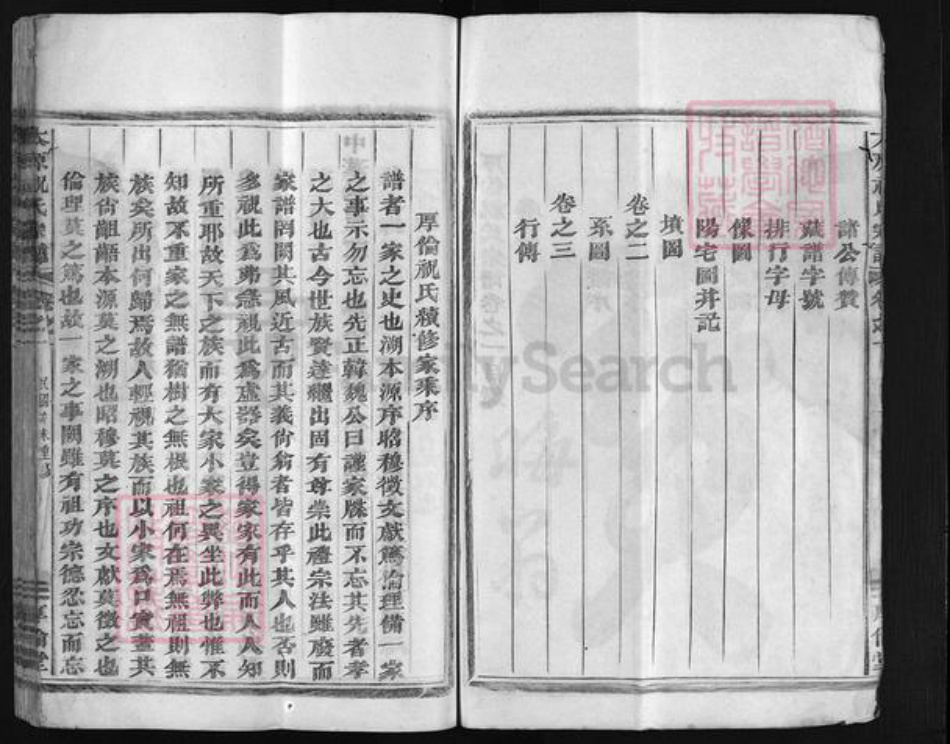 諸公傳贊
藏譜字號
排行字母
像圖
陽宅圖并記
墳圖
卷之二
系圖
卷之三
行傳
厚倫祝氏續修家乘序
譜者一家之史也溯本源序昭穆徵文獻篤倫理備一家
之事示勿忘也先正韓魏公曰謹家牒而不忘其先者孝
之大也古今世族賢達繼出固有尊崇此禮宗法雖廢而
家譜尚関其風近古而其義尚翁者皆存乎其人也否則
多視此為弗急視此為虛器矣豈得家家有此而人人知
所重耶故天下之族而有大家小家之異坐此弊也惟不
知故不重家之無譜猶樹之無根也祖何在焉無祖則無
族矣所出何歸焉故人輕視其族而以小家為口實蓋其
族尚齟齬本源莫之溯也昭穆莫之序也文獻莫徵之也
倫理莫之篤也故一家之事闕雖有祖功宗德忍忘而忘
太原祝氏宗譜 卷之一
厚倫堂
FamilySearch